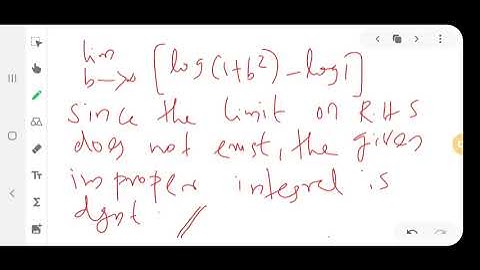 lim
b→∞ [log(1+b²) - log1]
Since the limit on R.H.S
does not exist, the given
improper integral is
dgnt.